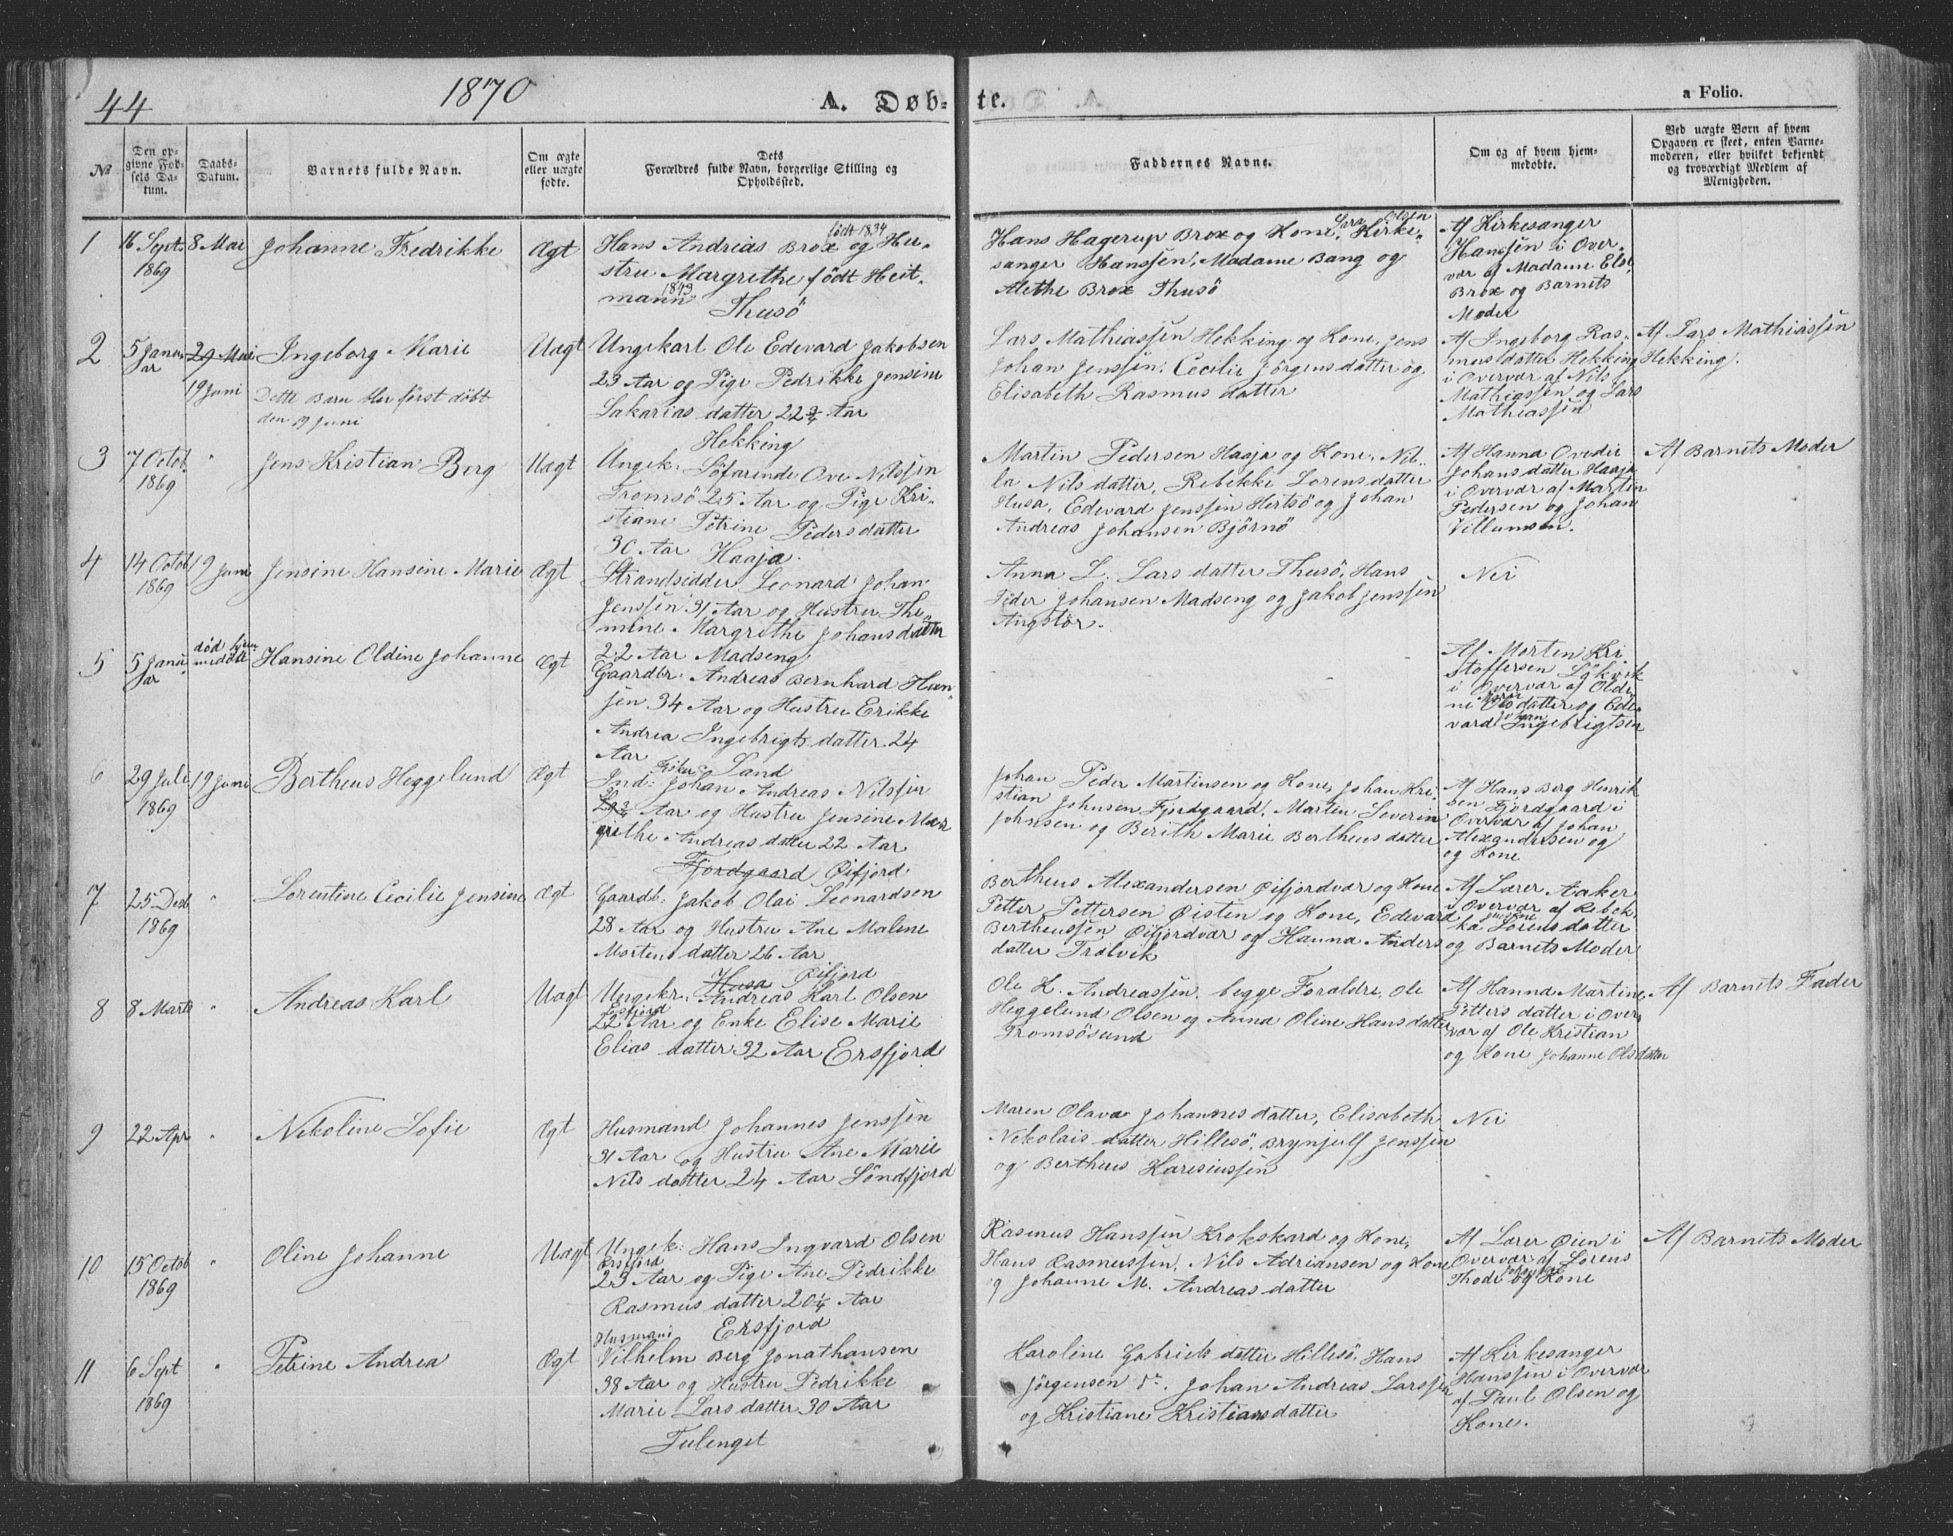 44
1870
A. Døb-
te.
a Folio.
№
Den op-
givne Fød-
sels Da-
tum.
Daabs-
Datum.
Barnets fulde Navn.
Om ægte
eller uægte
fødte.
Dets
Forældres fulde Navn, borgerlige Stilling og
Opholdssted.
Faddernes Navne.
Om og af hvem hjem-
medøbte.
Ved uægte Børn af hvem
Opgaven er skeet, enten Barne-
moderen, eller hvilket bekjendt
og troværdigt Medlem af
Menigheden.
1
16 Sept.
1869
8 Mai
Johanne Fredrikke
Ægt
født 1834
Hans Andreas Brox og Hu-
stru Margrethe født Heit-
mann 1843
Thusö
Lera Olsen
Hans Hagerup Brox og Kone, Kirke-
sanger Hanssen, Madame Bang og
Alethe Brox Thusö
Af Kirkesanger
Hanssen i Over-
vær af Madame Else
Brox og Barnets
Moder
2
5 Janu-
ar
29 Mai
19 Juni
Ingeborg Marie
Dette Barn blev først döbt
den 19 Juni
Uægt
Ungekarl Ole Edevard Jakobsen
23 Aar og Pige Pedrikke Jensine
Sakarias datter 22 3/4 Aar
Hekking
Lars Mathiassen Hekking og Kone, Jens
Johan Jenssen, Cecilie Jörgensdatter og
Elisabeth Rasmus datter
Af Ingeborg Ras-
mus datter Hekking
i Overvær af Nils
Mathiassen og Lars
Mathiassen
Af Lars Mathiassen
Hekking.
3
7 Octob
1869
"
Jens Kristian Berg
Uægt
Ungek. Söfarende Ove Nilssen
Tromsö 25 Aar og Pige Kri-
stiane Petrine Pedersdatter
30 Aar Haaja.
Martin Pedersen Haaja og Kone, Nil-
la Nils datter, Rebekke Lorensdatter
Husa, Edevard Jenssen Hertsö og Johan
Andreas Johansen Björnö
Af Hanna Ovedie
Johans datter Haaja
i Overvær af Martin
Pedersen og Johan
Villumsen.
Af Barnets Moder
4
14 Octob
1869
19 Juni
Jensine Hansine Marie
Ægt
Strandsidder Leonard Johan
Jenssen 31 Aar og Hustru The
mine Margrethe Johansdatter
22 Aar Madseng
Anna L. Lars datter Thusö, Hans
Peder Johansen Madseng og Jakob Jenssen
Angstör.
Nei
5
5 Janu-
ar
død hjem-
medøbt
Hansine Oldine Johanne
Ægt
Gaardbr. Andreas Bernhard Han-
sen 34 Aar og Hustru Erikke
Andrea Ingebrigts datter 24
Aar
Sand
Af Morten Kri
stoffersen Lökvik
i Overvær af Oldi-
ne datter og Ede-
vard Johan Ingebrigtsen
6
29 Juli
1869
19 Juni
Bertheus Heggelund
Ægt
Ind. Fisker Johan Andreas Nilssen
Aar og Hustru Jensine Mar
grethe Andreas datter 22 Aar
Fjordgaard Öifjord
Johan Peder Martinsen og Kone, Johan Kri-
stian Johnsen Fjordgaard, Marten Severin
Johnsen og Berith Marie Bertheus datter
Af Hans Berg Henrik
sen Fjordgaard i
Overvær af Johan
Alexandersen og
og Kone
7
25 Decb
1869
"
Lorentine Cecilie Jensine
Ægt
Gaardb. Jakob Olai Leonardsen
28 Aar og Hustru Ane Maline
Mortens datter 26 Aar
Husa Öifjord
Bertheus Alexandersen Öifjordvær og Kone
Petter Pettersen Öisten og Kone, Edevard
Bertheussen Öifjordvær og Hanna Anders
datter Trolvik
Af Lærer Aaker
i Overvær af Rebek-
ka Lorens datter
og Barnets Moder
8
8 Marts
"
Andreas Karl
Uægt
Ungkr. Andreas Karl Olsen
22 Aar og Enke Elise Marie
Elias datter 32 Aar Ersfjord
Ole K. Andreassen, begge Forældre, Ole
Heggelund Olsen og Anna Oline Hans datter
Tromsösund
Af Hanna Martine
Petters datter i Over-
vær af Ole Kristian
og Kone Johanne Ols datter
Af Barnets Fader
9
22 Apr
"
Nekoline Sofie
Ægt
Husmand Johannes Jenssen
31 Aar og Hustru Ane Marie
Nils datter 24 Aar Söndfjord
Maren Olava Johannesdatter, Elisabeth
Nekolais datter Hillesö, Brynjulf Jenssen
og Bertheus Karesiussen
Nei
10
15 Octob
1869
"
Oline Johanne
Uægt
Ungek. Hans Ingvard Olsen
Ersfjord
23 Aar og Pige Ane Pedrikke
Rasmus datter 20 1/4 Aar
Ersfjord
Rasmus Hanssen Krokskard og Kone,
Hans Rasmussen, Nils Adriansen og Kone
og Johanne M. Andreas datter
Af Lærer Öien i
Overvær af Lorens
Thode Johansen og Kone
Af Barnets Moder
11
6 Sept
1869
"
Petrine Andrea
Ægt
Husmand
Vilhelm Berg Jonathansen
38 Aar og Hustru Pedrikke
Marie Lars datter 30 Aar
Tulenget
Karoline Gabriels datter Hillesö, Hans
Jörgensen do. Johan Andreas Larssen
og Kristiane Kristiansdatter
Af Kirkesanger
Hanssen i Overvær
af Paul Olsen og
Kone.